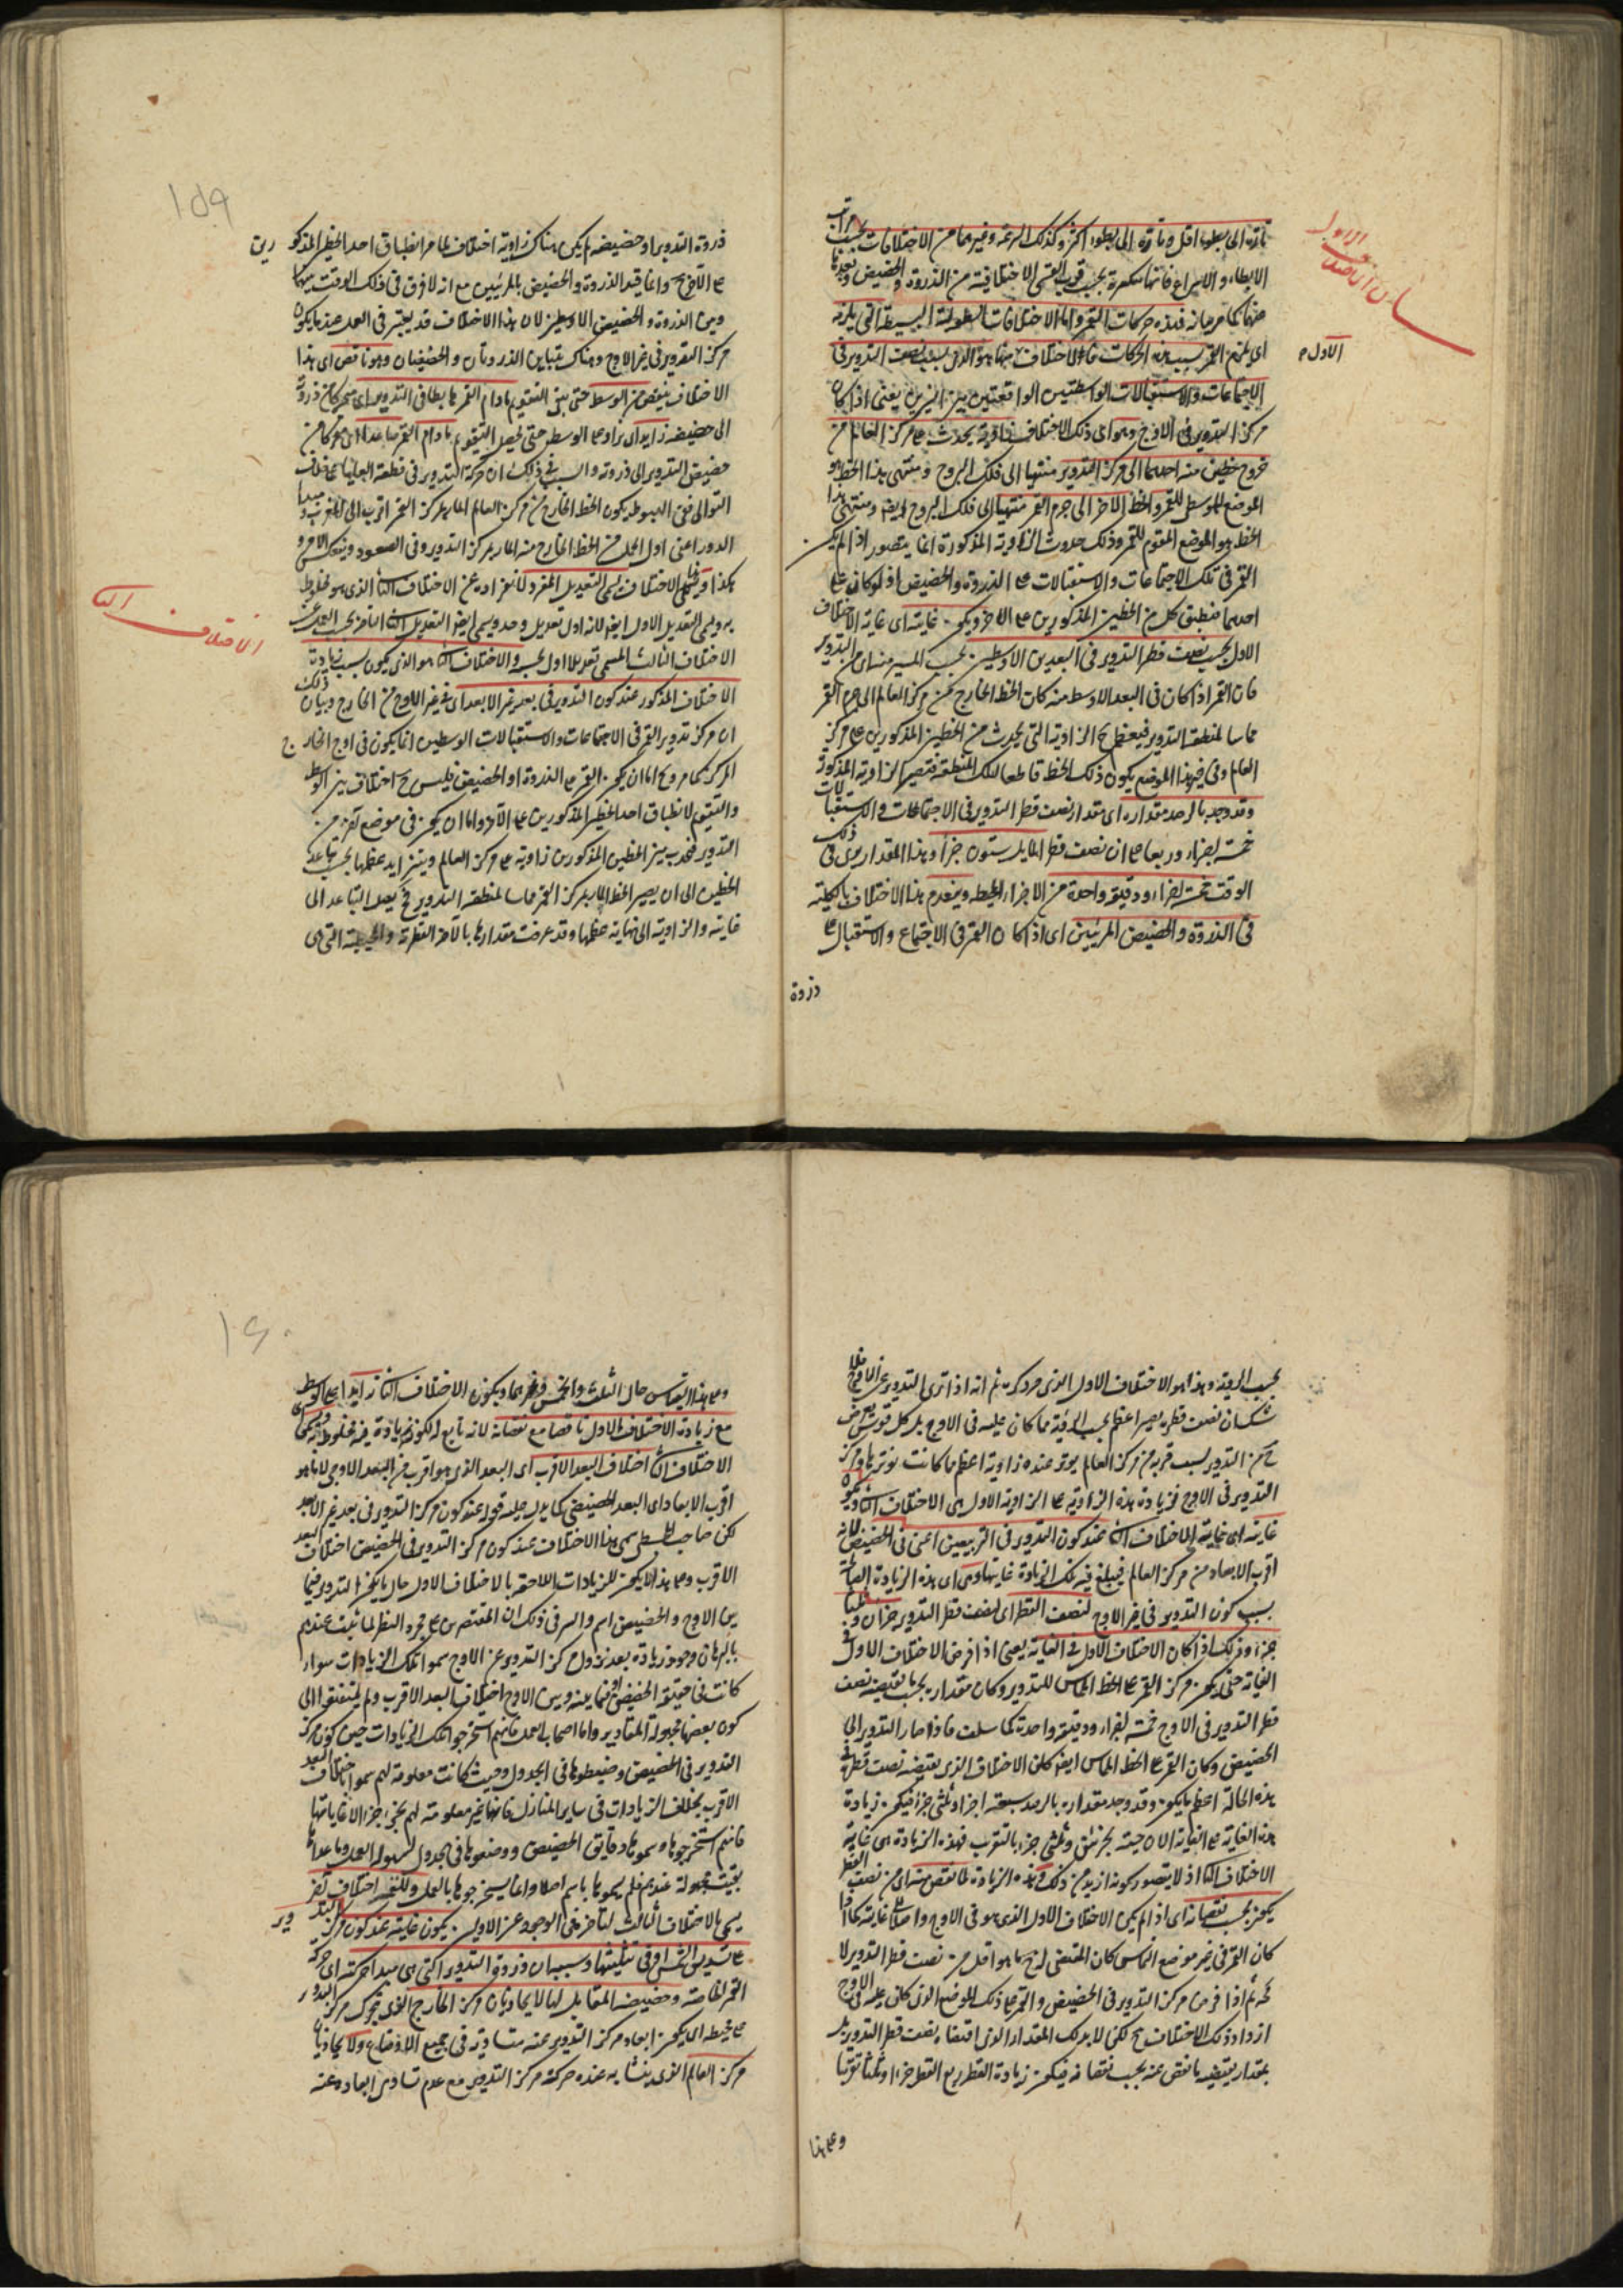 بيان الاختلاف الاول
تارة الى بطوء اقل وتارة الى بطوء اكثر وكذلك السرعة وغيرهما من الاختلافات بحسب مراتب
الابطاء والاسراع فانها متكثرة بحسب قرب القسى الاختلافية من الذروة والحضيض وبعدها
عنهما كما مر بيانه فهذه حركات القمر واما الاختلافات الطولية البسيطة التى يلزمه
اى يلزم القمر بسبب هذه الحركات فالاختلاف الاول منها هو الذى بسبب نصف التدوير فى
الاجتماعات والاستقبالات الوسطيتين الواقعتين بين النيرين يعنى اذا كان
مركز التدوير فى الاوج وهو اى ذلك الاختلاف زاوية يحدث على مركز العالم من
خروج خطين منه احدهما الى مركز التدوير منتهيا الى فلك البروج ومنتهى هذا الخط هو
الموضع الوسطى للقمر والخط الاخر الى جرم القمر منتهيا الى فلك البروج ايضا ومنتهى هذا
الخط هو الموضع المقوم للقمر وذلك حدوث الزاوية المذكورة انما يتصور اذا لم يكن
القمر فى تلك الاجتماعات والاستقبالات على الذروة والحضيض اذ لو كان على
احدهما ينطبق كل من الخطين المذكورين على الاخر ويكون غايته اى غاية الاختلاف
الاول بحسب نصف قطر التدوير فى البعدين الاوسطين بحسب المسير منه اى من التدوير
فان القمر اذا كان فى البعد الاوسط منه كان الخط الخارج من مركز العالم الى جرم القمر
مماسا لمنطقة التدوير فيعظم ح الزاوية التى يحدث من الخطين المذكورين على مركز
العالم وفى غير هذا الموضع يكون ذلك الخط قاطعا لتلك المنطقة فتصير الزاوية المذكورة
وقد وجد بالرصد مقداره اى مقدار نصف قطر التدوير فى الاجتماعات والاستقبالات
خمسة اجزاء وربعا على ان نصف قطر المايل ستون جزأ وهذا المقدار يرى فى ذلك
الوقت خمسة اجزاء ودقيقة واحدة من الاجزاء المحيطة وينعدم هذا الاختلاف بالكلية
فى الذروة والحضيض المرئيين اى اذا كان القمر فى الاجتماع والاستقبال على
ذروة
١٥٩
ذروة التدوير او حضيضه لم يكن هناك زاوية اختلاف لما مر انطباق احد الخطين المذكورين
على الآخر ح وانما قيد الذروة والحضيض بالمرئيين مع انه لا فرق فى ذلك الوقت بينهما
وبين الذروة والحضيض الاوسطين لان هذا الاختلاف قد يعتبر فى العمل عند ما يكون
مركز التدوير فى غير الاوج وهناك يتباين الذروتان والحضيضان وهو ناقص اى هذا
الاختلاف ينقص من الوسط حتى يبقى التقويم مادام القمر هابطا فى التدوير اى متحركا من ذروته
الى حضيضه زايد اى يزاد على الوسط حتى يحصل التقويم مادام القمر صاعدا اى متحركا من
حضيض التدوير الى ذروته والسبب فى ذلك ان حركة التدوير فى قطعته العليا على خلاف
التوالى ففى الهبوط يكون الخط الخارج من مركز العالم المار بمركز القمر اقرب الى المغرب ومبدا
الدور اعنى اول الحمل من الخط الخارج منه المار بمركز التدوير وفى الصعود وينعكس الامر و
هكذا ويسمى هذا الاختلاف يسمى التعديل المفرد لانفراده عن الاختلاف الثانى الذى هو مخلوط
به ويسمى التعديل الاول ايضا لانه اول تعديل وجد ويسمى ايضا التعديل الثانى لتاخره بحسب العمل عن
الاختلاف الثالث المسمى تعديلا اول بحسبه والاختلاف الثانى هو الذى يكون بسبب زيادة
الاختلاف الثانى
الاختلاف المذكور عند كون التدوير فى بعد غير الابعد اى فى غير الاوج من الخارج وبيان ذلك
ان مركز تدوير القمر فى الاجتماعات والاستقبالات الوسطيين انما يكون فى اوج الخارج
المركز كما مر وح اما ان يكون القمر على الذروة او الحضيض فليس ح اختلاف بين الوسط
والتقويم لانطباق احد الخطين المذكورين على الآخر واما ان يكون فى موضع آخر من
التدوير فيحدث بين الخطين المذكورين زاوية على مركز العالم ويتزايد عظمها بحسب تباعد
الخطين الى ان يصير الخط المار بمركز القمر مماسا لمنطقة التدوير فح يصل التباعد الى
غايته والزاوية الى نهاية عظمها وقد عرفت مقدارها بالاجزاء القطرية والمحيطية التى هى
بحسب الرؤية وهذا هو الاختلاف الاول الذى مر ذكره ثم انه اذا ترى التدوير عن الاوج فلا
شك ان نصف قطره يصير اعظم بحسب الرؤية مما كان عليه فى الاوج بل كل قوس يفرض
ح من التدوير بسبب قربه من مركز العالم يوتر عنده زاوية اعظم مما كانت يوترها ومركز
التدوير فى الاوج فزيادة هذه الزاوية على الزاوية الاول هى الاختلاف الثانى ويكون
غايته اى غاية الاختلاف الثانى عند كون التدوير فى التربيعين اعنى فى الحضيض لانه
اقرب الابعاد من مركز العالم فيبلغ فيه تلك الزيادة غايتها وهى اى هذه الزيادة الغاية
بسبب كون التدوير فى غير الاوج لنصف القطر اى لنصف قطر التدوير جزان وثلثا
جزء وذلك اذا كان الاختلاف الاول فى الغاية يعنى اذا فرض الاختلاف الاول فى
الغاية حتى يكون مركز القمر على الخط المماس للتدوير وكان مقداره بحسب ما يقتضيه نصف
قطر التدوير فى الاوج خمسة اجزاء ودقيقة واحدة كما سلف فاذا صار التدوير الى
الحضيض وكان القمر على الخط المماس ايضا كان الاختلاف الذى يقتضيه نصف قطره فى
هذه الحالة اعظم ما يكون وقد وجد مقداره بالرصد سبعة اجزاء وثلثى جزء فيكون زيادة
هذه الغاية على الغاية الاوجية بجزئين وثلثى جزء بالتقريب فهذه الزيادة هى غاية
الاختلاف الثانى اذ لا يتصور كونه ازيد من ذلك وهذه الزيادة لما نقص منه اى من نصف القطر
يكون بحسب نقصانه اى اذا لم يكن الاختلاف الاول الذى هو فى الاوج واصلا الى غايته كما اذا
كان القمر فى غير موضع التماس كان المقتضى له ح ما هو اقل من نصف قطر التدوير لا
محة ثم اذا فرض مركز التدوير فى الحضيض والقمر على ذلك الموضع الذى كان عليه فى الاوج
ازداد ذلك الاختلاف ح لكن لا بذلك المقدار الذى اقتضاه نصف قطر التدوير بل
بمقدار يقتضيه ما نقص عنه بحسب نقصانه فيكون زيادة القطر ربع القطر جزءا وثلثا تقريبا
وعلى هذا
١٦٠
وعلى هذا القياس حال الثلث والخمس وغيرهما ويكون الاختلاف الثانى زايدا على الوسط
مع زيادة الاختلاف الاول ناقصا مع نقصانه لانه تابع له لكونه زيادة فيه مخلوطة به ويسمى
الاختلاف الثانى اختلاف البعد الاقرب اى البعد الذى هو اقرب من البعد الاوجى لا ما هو
اقرب الابعاد اى البعد الحضيضى كما يدل عليه قوله عند كون مركز التدوير فى بعد غير الابعد
لكن صاحب المجسطى سمى هذا الاختلاف عند كون مركز التدوير فى الحضيض اختلاف البعد
الاقرب وعلى هذا لا يكون للزيادات اللاحقة بالاختلاف الاول حال ما يكون التدوير فيما
بين الاوج والحضيض اسم والسر فى ذلك ان المقتصرين على مجرد النظر لما ثبت عندهم
بالبرهان وجود زيادة بعد نزول مركز التدوير عن الاوج سموا تلك الزيادات سواء
كانت فى حقيقة الحضيض او فيما بينه وبين الاوج اختلاف البعد الاقرب ولم يلتفتوا الى
كون بعضها مجهولة المقادير واما اصحاب العمل فانهم استخرجوا تلك الزيادات حين كون مركز
التدوير فى الحضيض وضبطوها فى الجدول وحيث كانت معلومة لهم سموها اختلاف البعد
الاقرب بخلاف الزيادات فى ساير المنازل فانها غير معلومة لهم بجزء جزء الا غاياتها
فانهم استخرجوها وسموها دقايق الحضيض ووضعوها فى الجدول لسهولة العمل وما عداها
بقيت مجهولة عندهم فلم يسموها باسم اصلا وانما يستخرجوها بالعمل وللقمر اختلاف اخر
يسمى بالاختلاف الثالث لتاخره فى الوجود عن الاولين يكون غايته عند كون مركز التدوير
على تسديس الشمس او فى تثليثها وسببه ان ذروة التدوير التى هى مبدا حركته اى حركة
القمر الخاصة وحضيضه المقابل لها لا يحاذيان مركز الخارج الذى يتحرك مركز التدوير
على محيطه اى يكون ابعاد مركز التدوير عنه متساوية فى جميع الاوضاع ولا يحاذيان
مركز العالم الذى يتشابه عنده حركة مركز التدوير مع عدم تساوى ابعاده عنه